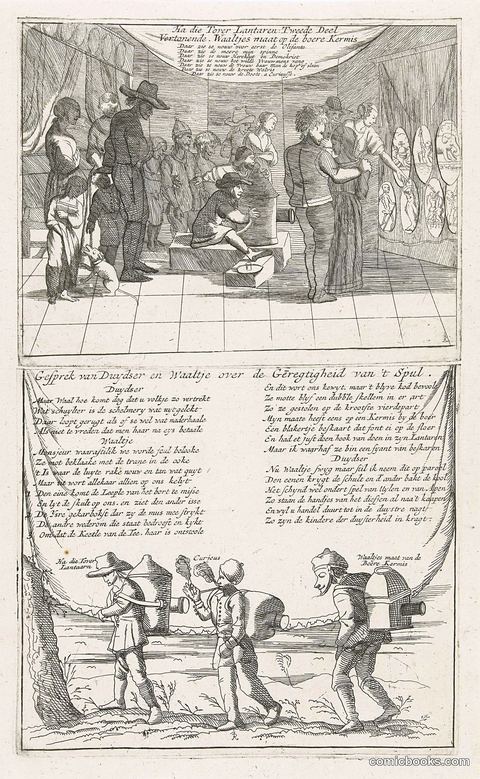 Ha die Tover Lantaren: Tweede Deel
Vertonende. Waaltjes maat op de boere Kermis
Daar zie je nouw over eerst de Olifante
Daar zie de moere met spinne
Daar zie je nouw Heraklyt en Demokriet
Daar zie je nouw
Daar zie je nouw de Vrouw haar Man de
Daar zie je nouw de kroote
Daar zie je nouw de Doots, a Curieuse
Gesprek van Duydser en Waaltje over de Geregtigheid van 't Spul.
Duydser
Maar Waal hoe komt dog dat u volkje zo vertrekt
Wat schuylter is de schelmery wat uytgelekt
Daar loopt gerugt als of se wel wat naderhaale
Als niet te vreden met men haar na eys betaale
Waaltje
Monsieur waarafitlik we worde seul belooke
Zo met beklaake met de trane in de ooke
't Is waar de luyte rake nouw en tan wat quyt
Maar we wort allekaar allien op ons kelyt
Den eene komt de Leeple van het bort te misse
En lyt de skult op ons, en ziet den ander isse
De Ysre gekarbokst dar zy de mus mee strykt
De andre wederom die staat bedroeft en kykt
Omdat de Keetle van de Tee, haar is ontstoole
En dit wort ons kewyt, maar't blyve kod bevoole
Ze motte blyf een dubble skellem in er art
Zo ze gestolen op de krootste vierdepart
Myn maats heeft eens op een Kermis by de boer
Een blakertje beskaart dat sont er op de sloer
En had et just doen hook van doen in zyn Lantaren
Maar ik waarhaf zu bin een fyant van beskaren
Duydser
Nu Waaltje swyg maar stil ik neem dit op parool
Den eenen krygt de schult en d'ander bakt de kool
Het schynd wel ondert spel van Uylen en van Apen
Zo staan de handjes van het dieffen al na't kaapen
En wyl u handel duurt tot in de duystre nagt
Zo zyn de kindere der duysterheid in kragt.
Ha die Tover
Lantaarn
Curieus
Waaltjes maat van de
Boere Kermis
comicbooks.com